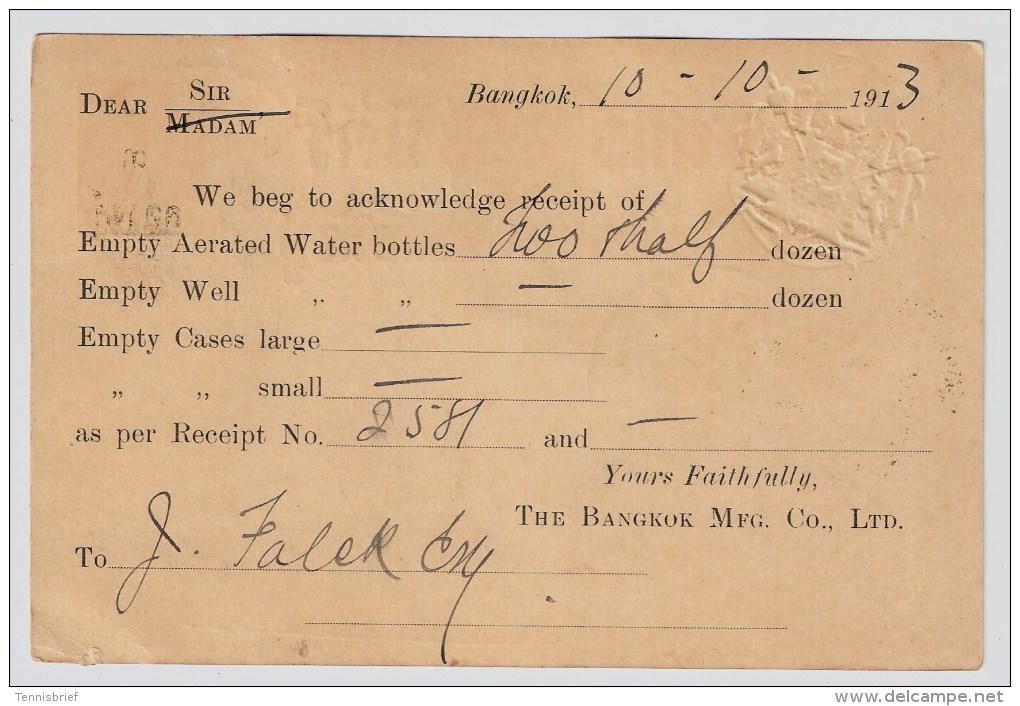 DEAR SIR
MADAM
Bangkok, 10 - 10 - 1913
We beg to acknowledge receipt of
Empty Aerated Water bottles Two & half dozen
Empty Well „ „ — dozen
Empty Cases large —
„ „ small —
as per Receipt No. 2581 and —
Yours Faithfully,
THE BANGKOK MFG. CO., LTD.
To J. Falck Esq.
Tennisbrief
www.delcampe.net